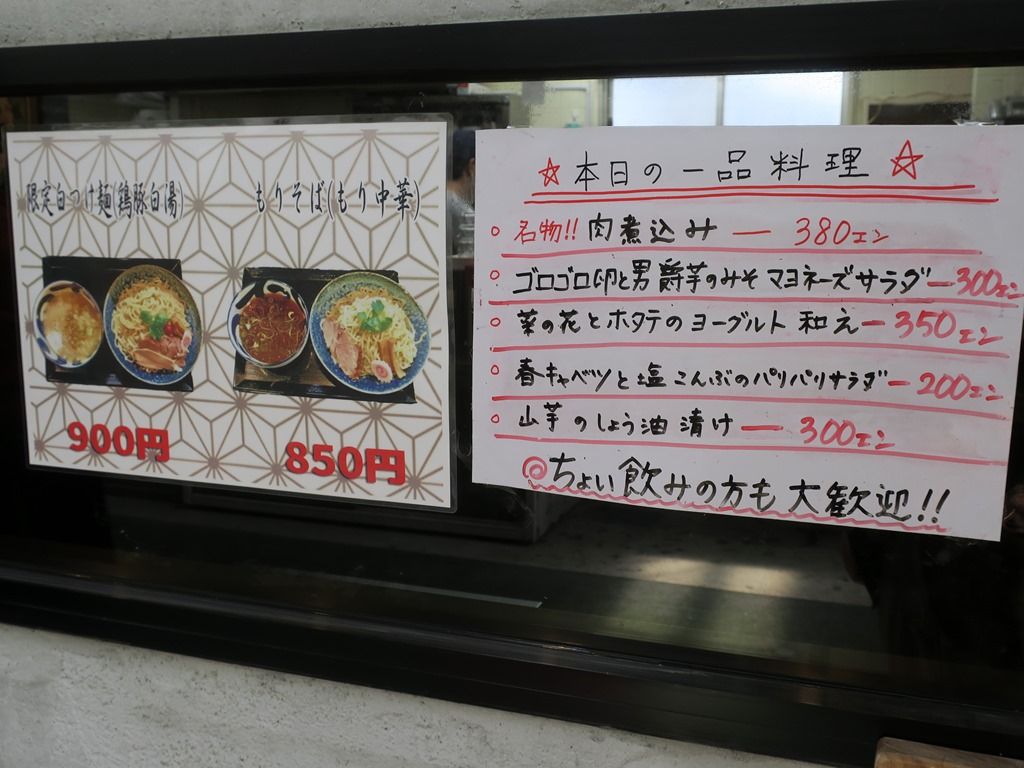 限定白つけ麺(鶏豚白湯)
もりそば(もり中華)
900円
850円
☆本日の一品料理☆
○名物!!肉煮込み—380エン
○ゴロゴロ卵と男爵芋のみそマヨネーズサラダ—300エン
○菜の花とホタテのヨーグルト和え—350エン
○春キャベツと塩こんぶのパリパリサラダ—200エン
○山芋のしょう油漬け—300エン
◎ちょい飲みの方も大歓迎!!